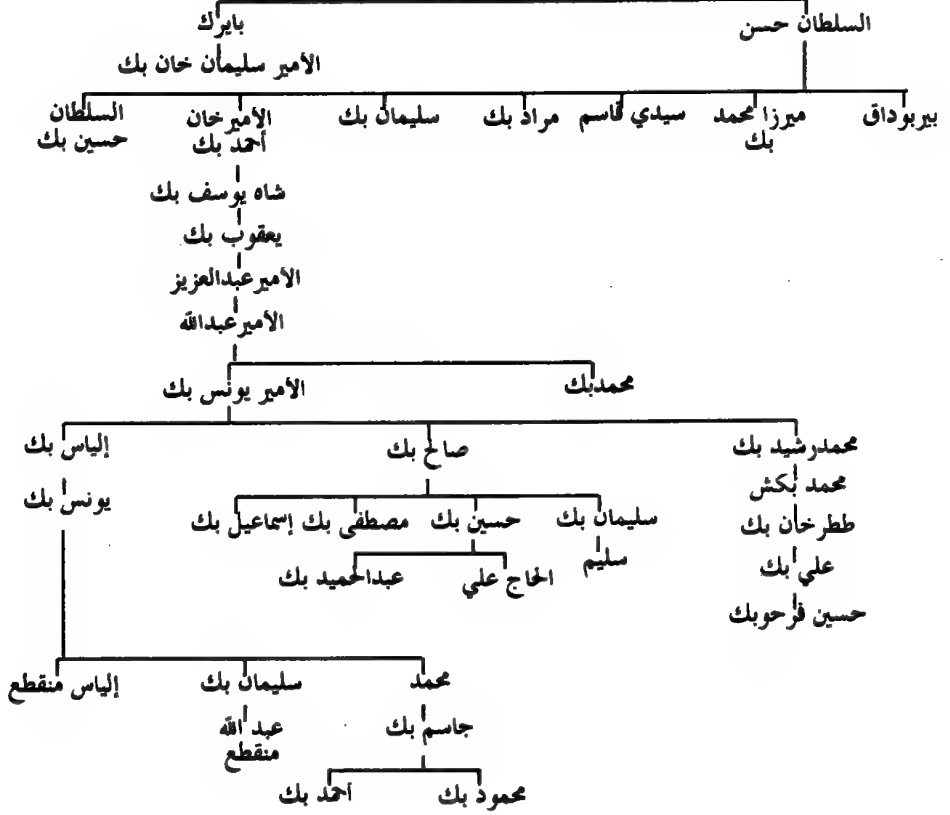 السلطان حسن
بايرك
الأمير سليمان خان بك
بيربوداق
ميرزا محمد
بك
سيدي قاسم
مراد بك
سليمان بك
الأمير خان
أحمد بك
السلطان
حسين بك
شاه يوسف بك
يعقوب بك
الأمير عبدالعزيز
الأمير عبدالله
محمدبك
الأمير يونس بك
محمدرشيد بك
صالح بك
إلياس بك
محمد بكش
يونس بك
ططرخان بك
سليمان بك
حسين بك
مصطفى بك
إسماعيل بك
علي بك
سليم
الحاج علي
عبدالحميد بك
حسين فرحوبك
محمد
سليمان بك
إلياس منقطع
جاسم بك
عبد الله
منقطع
محمود بك
أحمد بك